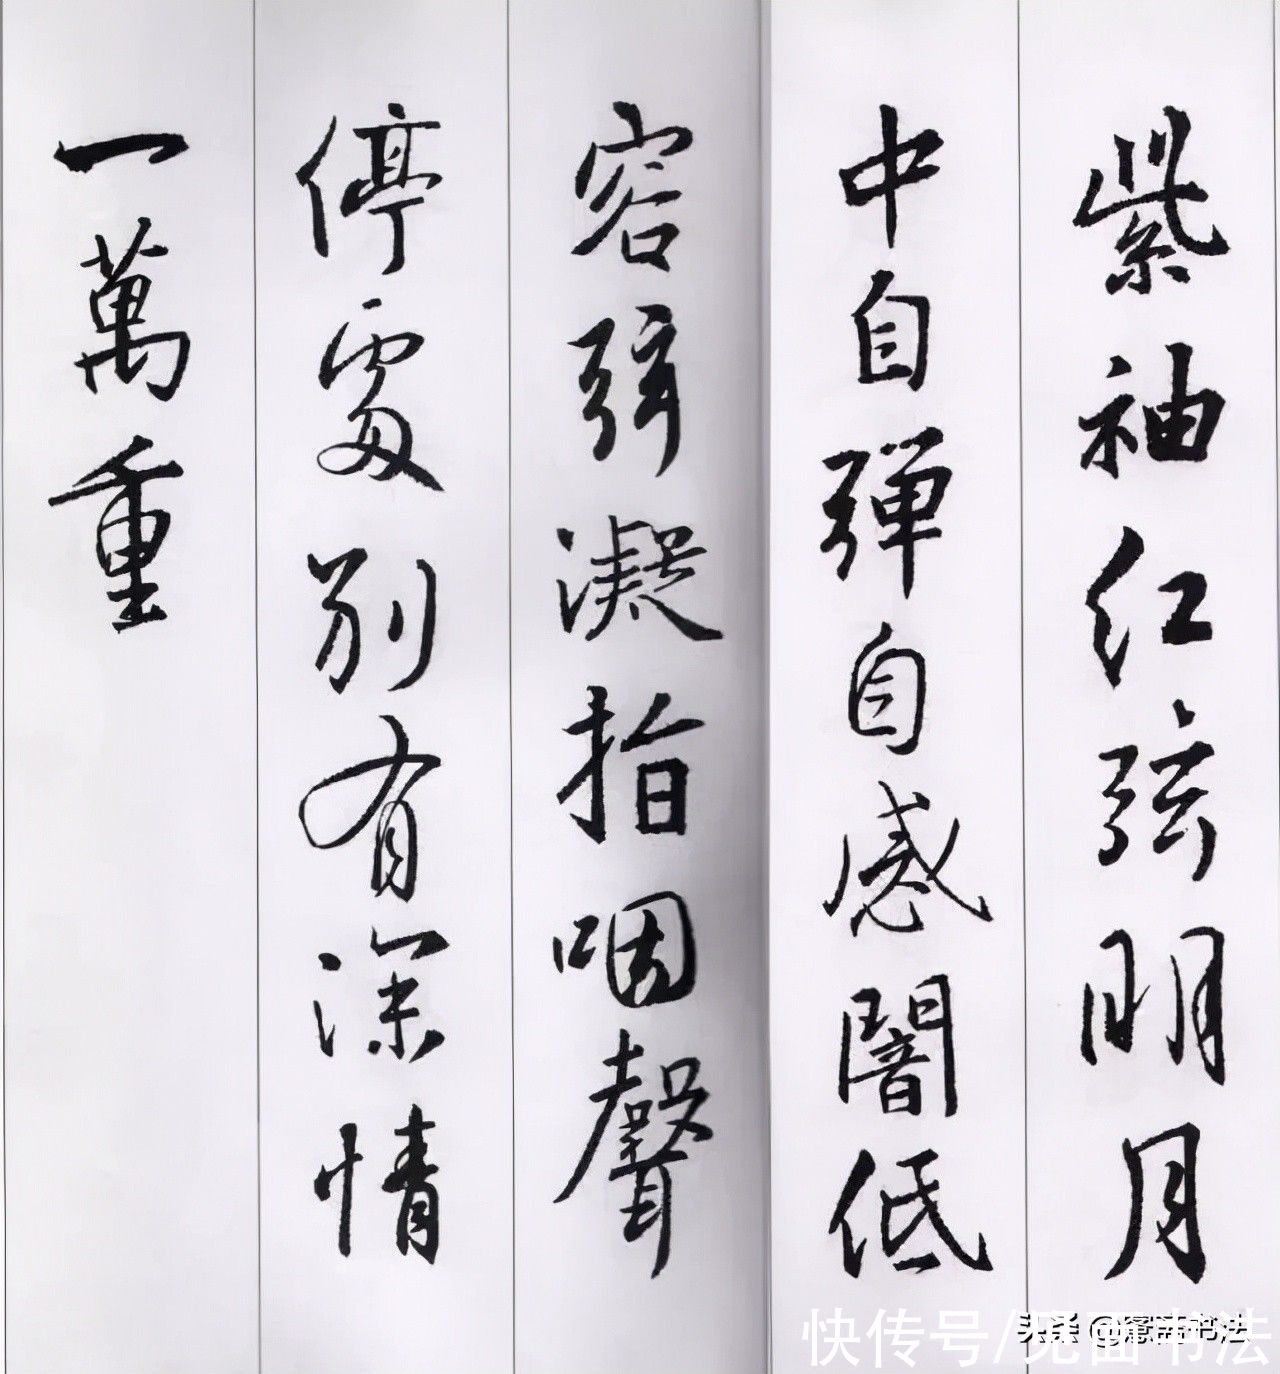 紫袖红弦明月
中自弹自感闇低
容弦凝指咽聲
停處别有深情
一萬重
快传号/见面书法
头条